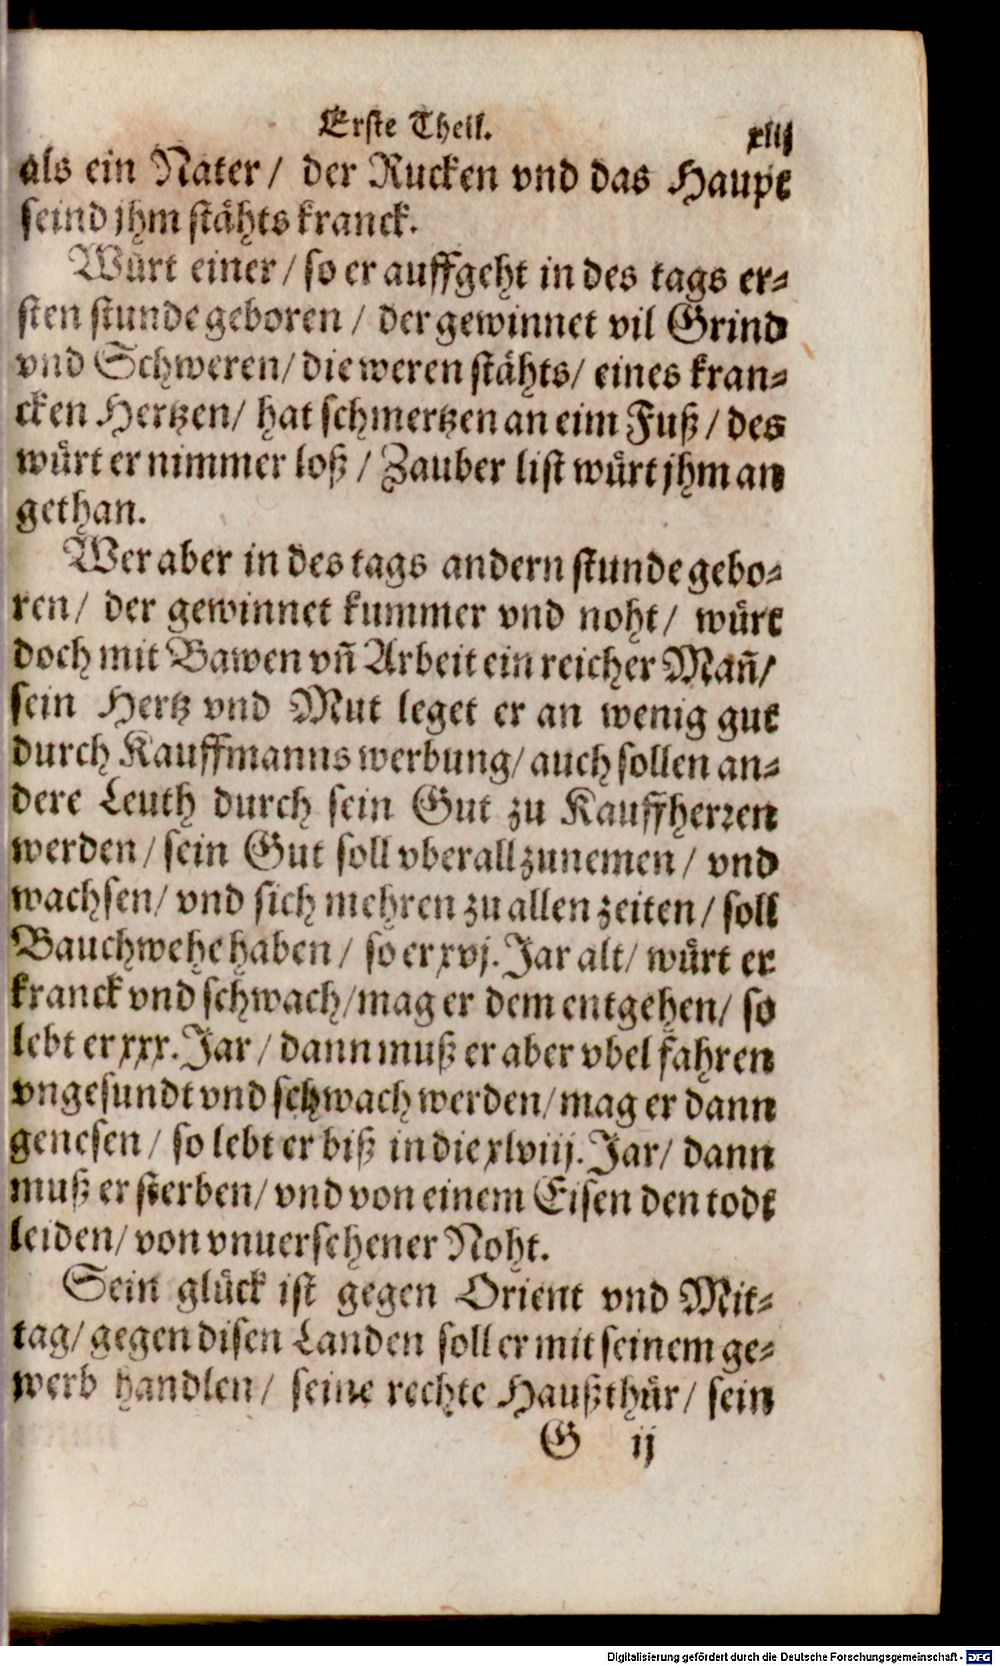 Erste Theil. xliij
als ein Nater / der Rucken vnd das Haupt
seind jhm stähts kranck.
Wuͤrt einer / so er auffgeht in des tags er-
sten stunde geboren / der gewinnet vil Grind
vnd Schweren / die weren stähts / eines kran-
cken Hertzen / hat schmertzen an eim Fuß / des
wuͤrt er nimmer loß / Zauber list wuͤrt jhm an
gethan.
Wer aber in des tags andern stunde gebo-
ren / der gewinnet kummer vnd noht / wuͤrt
doch mit Bawen vñ Arbeit ein reicher Mañ /
sein Hertz vnd Mut leget er an wenig gut
durch Kauffmanns werbung / auch sollen an-
dere Leuth durch sein Gut zu Kauffherren
werden / sein Gut soll vberall zunemen / vnd
wachsen / vnd sich mehren zu allen zeiten / soll
Bauchwehe haben / so er xvj. Jar alt / wuͤrt er
kranck vnd schwach / mag er dem entgehen / so
lebt er xxx. Jar / dann muß er aber vbel fahren
vngesundt vnd schwach werden / mag er dann
genesen / so lebt er biß in die xlviij. Jar / dann
muß er sterben / vnd von einem Eisen den todt
leiden / von vnuersehener Noht.
Sein gluͤck ist gegen Orient vnd Mit-
tag / gegen disen Landen soll er mit seinem ge-
werb handlen / seine rechte Haußthuͤr / sein
G ij
Digitalisierung gefördert durch die Deutsche Forschungsgemeinschaft - DFG